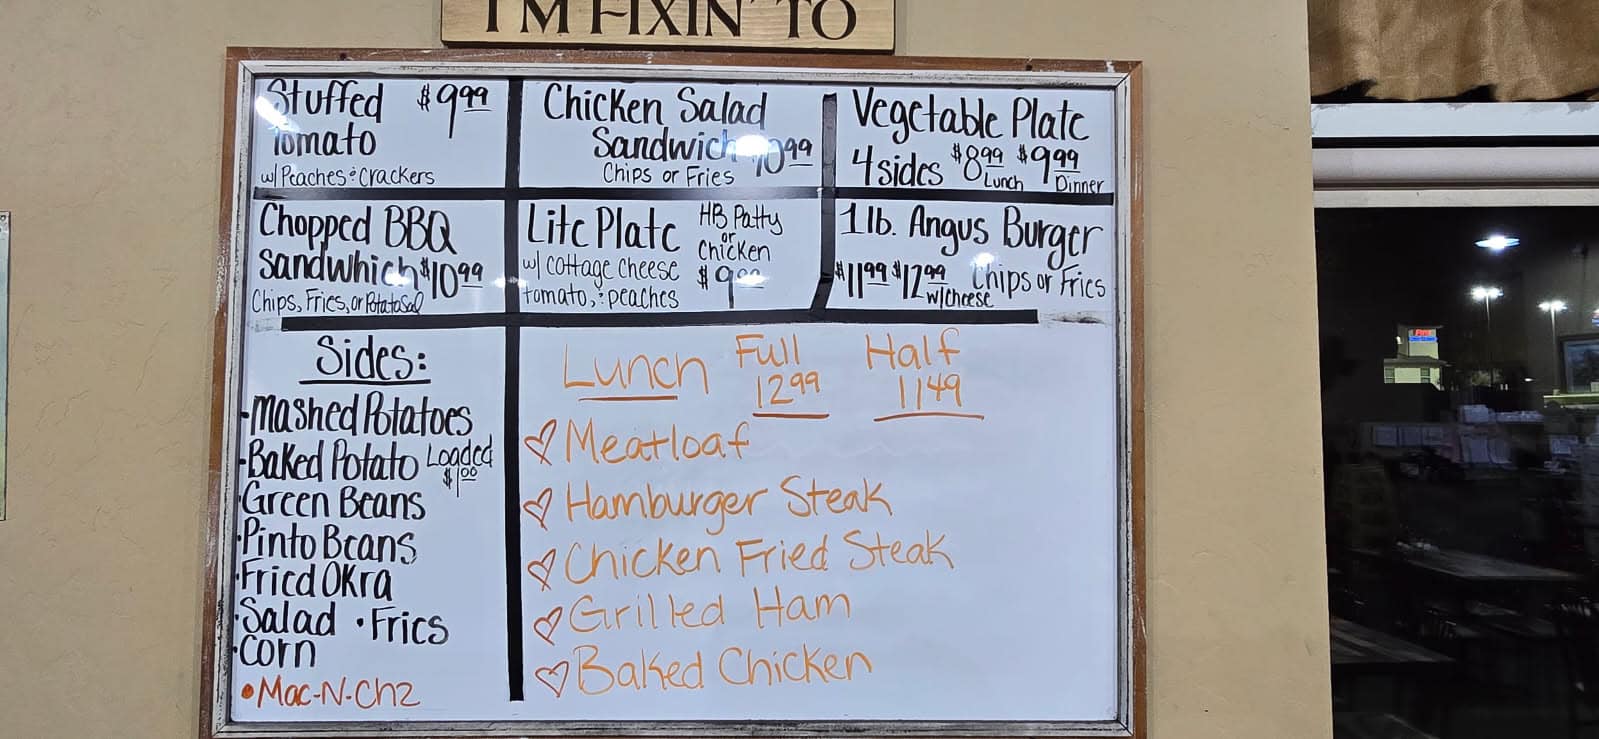 I'M FIXIN' TO
Stuffed $9.99
Tomato
w/ Peaches & Crackers
Chicken Salad
Sandwich 10.99
Chips or Fries
Vegetable Plate
4 sides $8.99 Lunch $9.99 Dinner
Chopped BBQ
Sandwhich $10.99
Chips, Fries, or Potato Sal
Lite Plate HB Patty or Chicken
w/ cottage cheese $9.99
tomato, & peaches
1 lb. Angus Burger
$11.99 $12.99 w/cheese Chips or Fries
Sides:
• Mashed Potatoes
• Baked Potato Loaded $1.00
• Green Beans
• Pinto Beans
• Fried Okra
• Salad • Fries
• Corn
• Mac-N-Chz
Lunch Full 12.99 Half 11.49
♡ Meatloaf
♡ Hamburger Steak
♡ Chicken Fried Steak
♡ Grilled Ham
♡ Baked Chicken